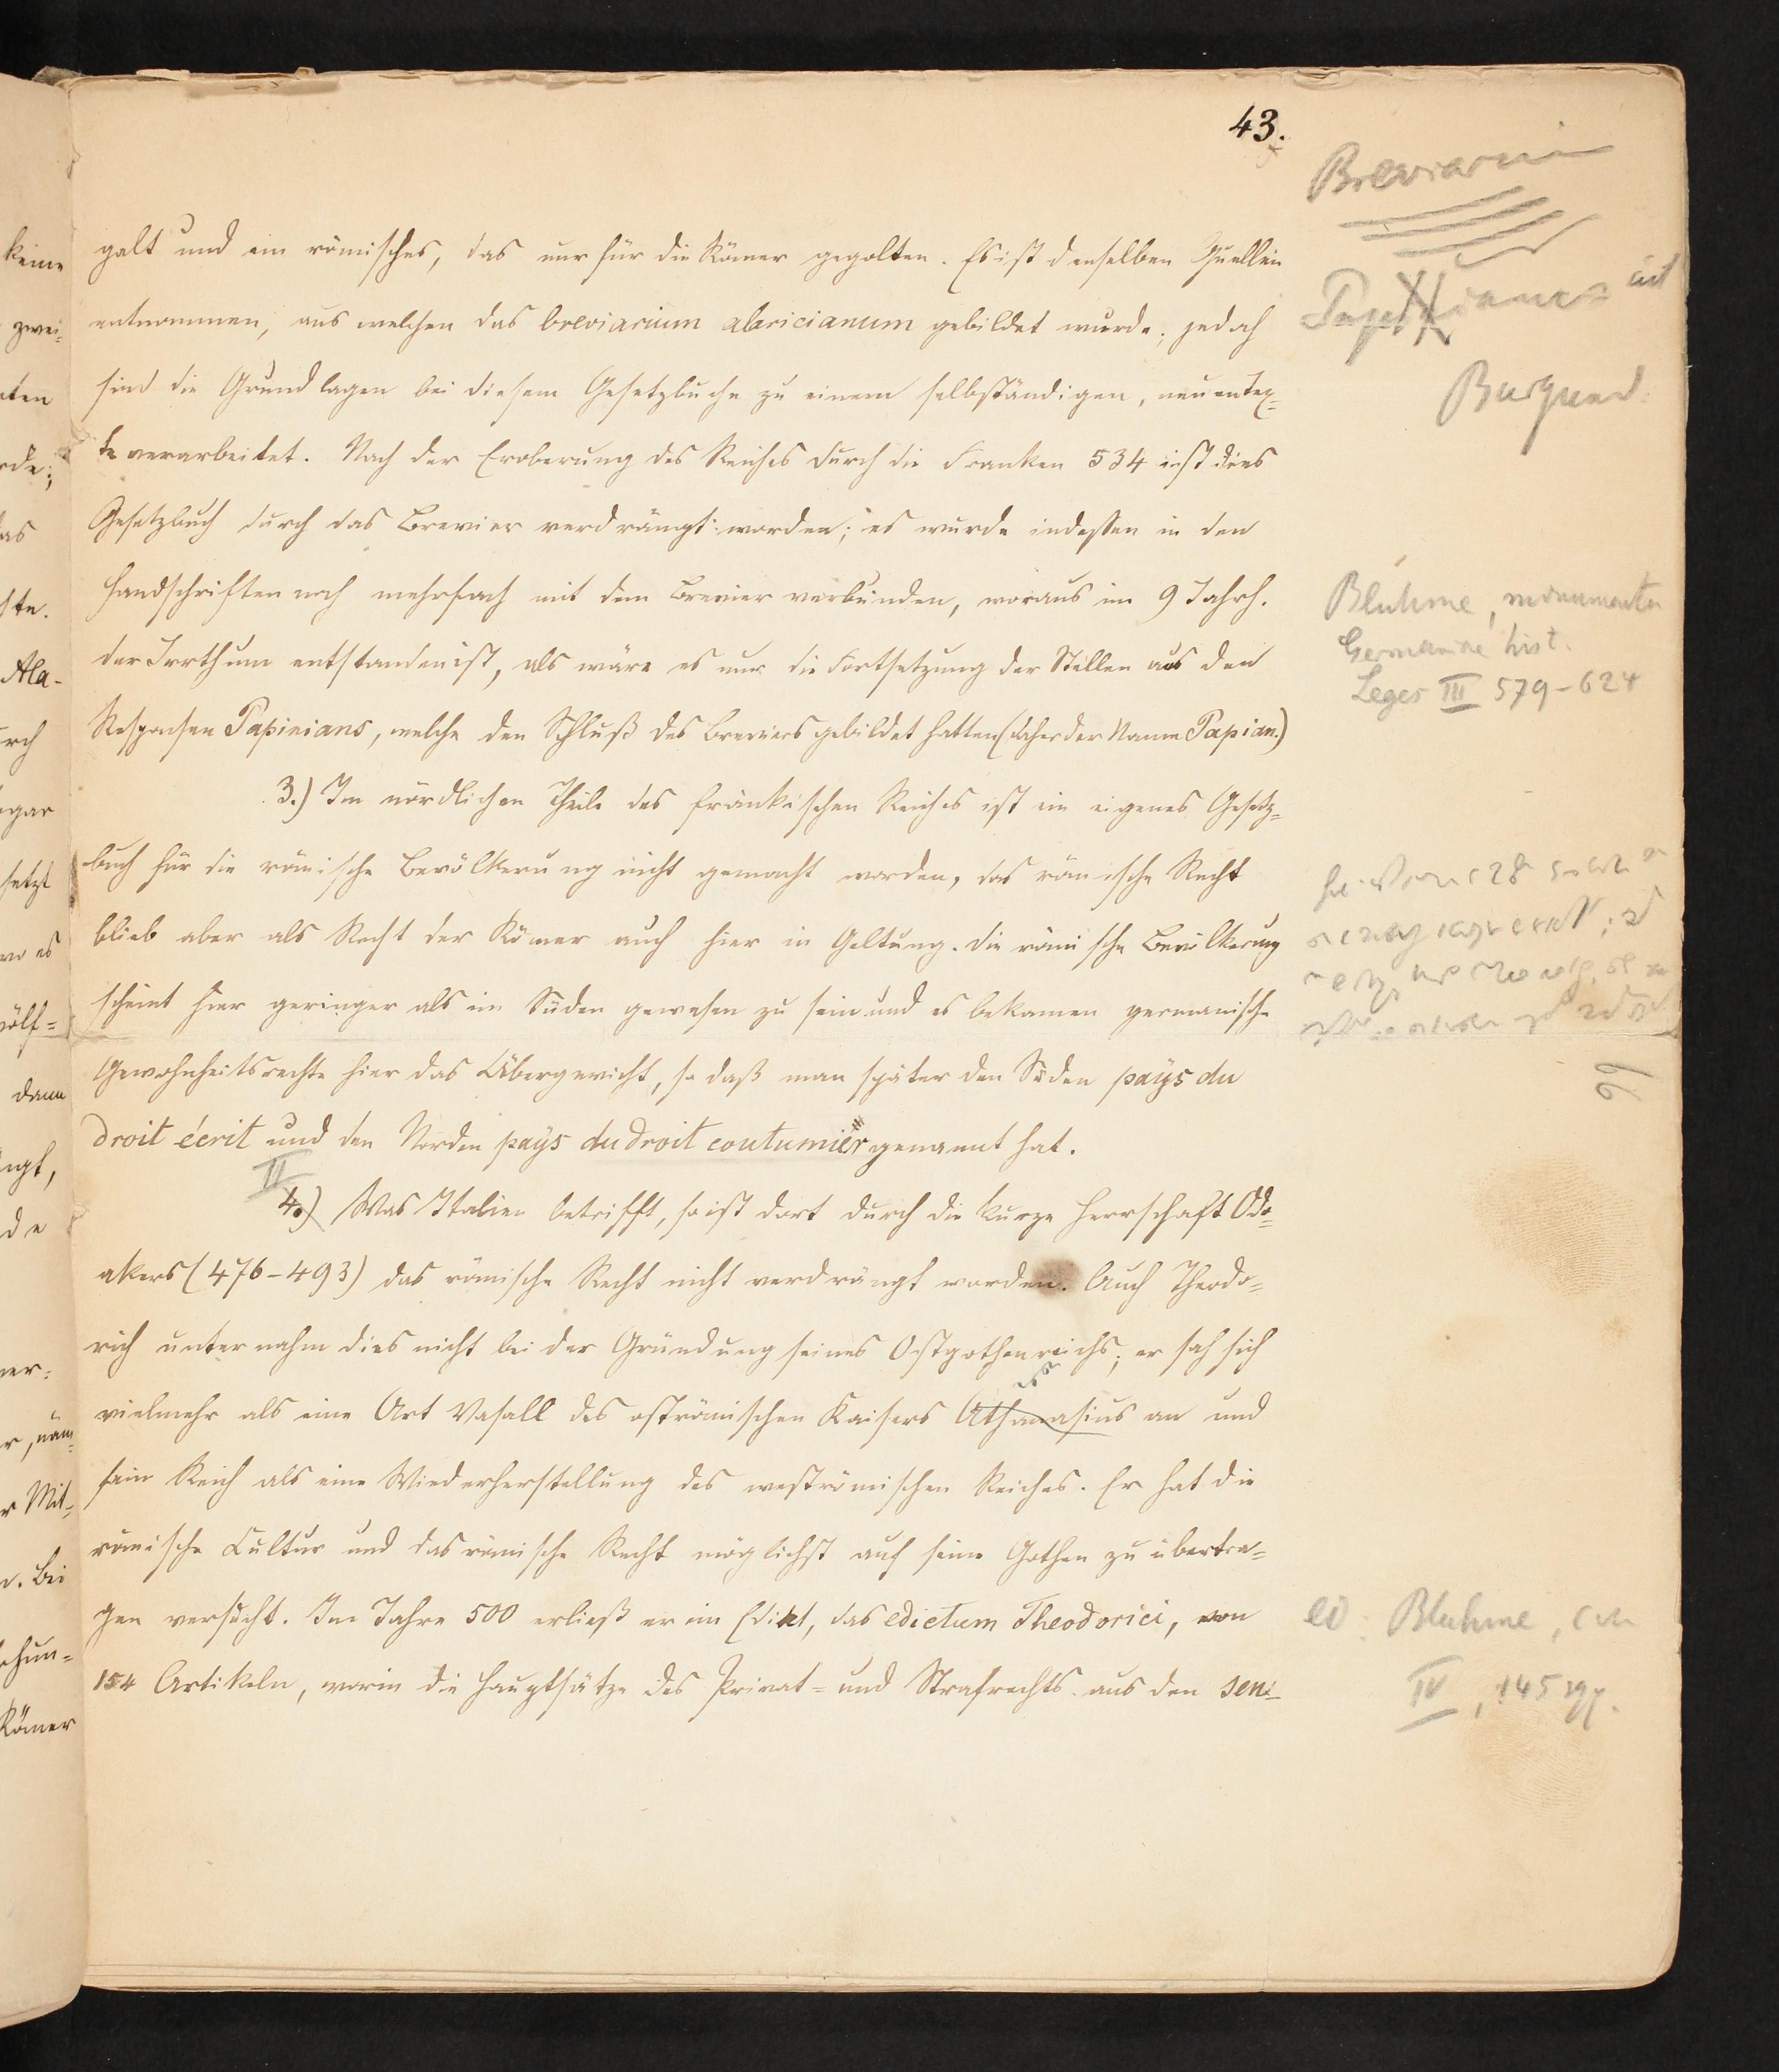 43.
galt und ein römisches, das nur für die Römer gegolten. Es ist denselben Quellen
entnommen, aus welchen das breviarium alaricianum gebildet wurde; jedoch
sind die Grundlagen bei diesem Gesetzbuche zu einem selbständigen, neuen Tex=
te verarbeitet. Nach der Eroberung des Reiches durch die Franken 534 ist dies
Gesetzbuch durch das Brevier verdrängt worden; es wurde indessen in den
Handschriften noch mehrfach mit dem Brevier verbunden, woraus im 9 Jahrh.
der Irrthum entstanden ist, als wäre es nur die Fortsetzung der Stellen aus den
Responsen Papinians, welche den Schluß des Breviers gebildet hatten (daher der Name Papian.)
3.) Im nördlichen Theile des fränkischen Reiches ist ein eigenes Gesetz=
buch für die römische Bevölkerung nicht gemacht worden, das römische Recht
blieb aber als Recht der Römer auch hier in Geltung. Die römische Bevölkerung
scheint hier geringer als im Süden gewesen zu sein und es bekamen germanische
Gewohnheitsrechte hier das Übergewicht, so daß man später den Süden pays du
droit écrit und den Norden pays du droit coutumier genannt hat.
II
4.) Was Italien betrifft, so ist dort durch die kurze Herrschaft Odo=
akers (476-493) das römische Recht nicht verdrängt worden. Auch Theodo=
rich unternahm dies nicht bei der Gründung seines Ostgothenreichs; er sah sich
vielmehr als eine Art Vasall des oströmischen Kaisers Athanasius an und
sein Reich als eine Wiederherstellung des weströmischen Reiches. Er hat die
römische Cultur und das römische Recht möglichst auf seine Gothen zu übertra=
gen versucht. Im Jahre 500 erließ er ein Edikt, das edictum Theodorici, von
154 Artikeln, worin die Hauptsätze des Privat= und Strafrechts aus den sen=
Breviarium
Burgund.
Bluhme, monumenta
Germaniae hist.
Leges III 579-624
ed. Bluhme,
IV, 145 sqq.
keine
zwei=
Ala-
wo es
dann
Mit=
Bei
Römer